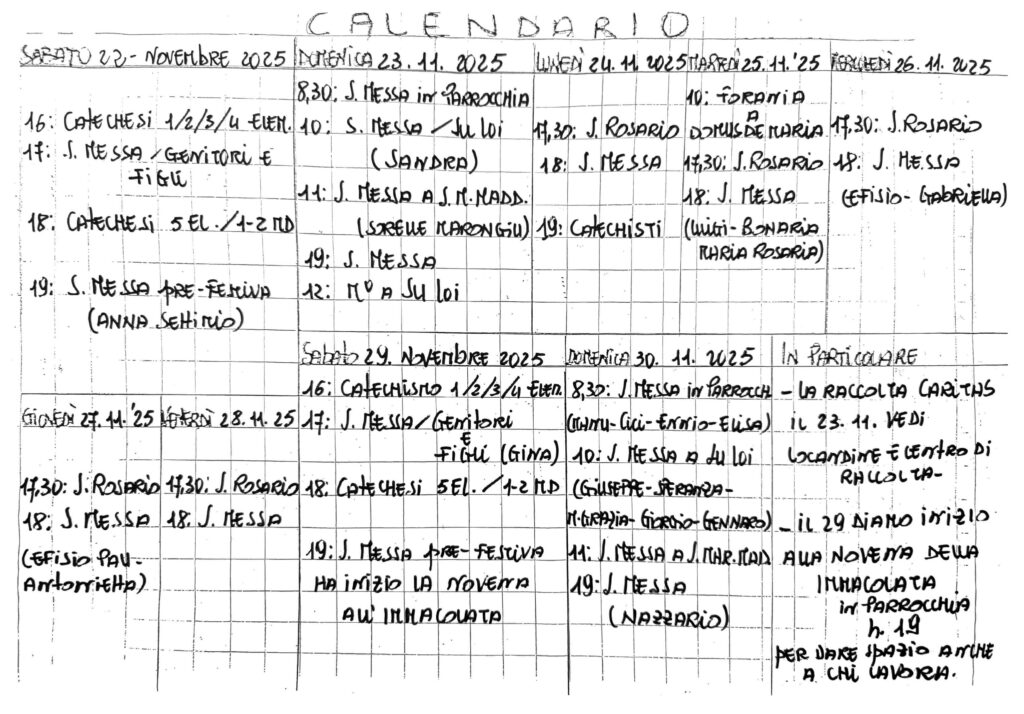 CALENDARIO
SABATO 22 - NOVEMBRE 2025
16: CATECHESI 1/2/3/4 ELEM.
17: S. MESSA / GENITORI E
FIGLI
18: CATECHESI 5 EL. / 1-2 MD
19: S. MESSA PRE-FESTIVA
(ANNA SETTIMIO)
DOMENICA 23.11.2025
8,30: S. MESSA in PARROCCHIA
10: S. MESSA / SU LOI
(SANDRA)
11: S. MESSA A S.M. MADD.
(SORELLE MARONGIU)
19: S. MESSA
12: Mº A SU LOI
LUNEDÌ 24.11.2025
17,30: S. ROSARIO
18: S. MESSA
19: CATECHISTI
MARTEDÌ 25.11.'25
10: FORANIA
A
DOMUS DE MARIA
17,30: S. ROSARIO
18: S. MESSA
(LUIGI - BONARIA
MARIA ROSARIA)
MERCOLEDÌ 26.11.2025
17,30: S. ROSARIO
18: S. MESSA
(EFISIO - GABRIELLA)
GIOVEDÌ 27.11.'25
17,30: S. ROSARIO
18: S. MESSA
(EFISIO PAU -
ANTONIETTA)
VENERDÌ 28.11.25
17,30: S. ROSARIO
18: S. MESSA
SABATO 29. NOVEMBRE 2025
16: CATECHISMO 1/2/3/4 ELEM.
17: S. MESSA / GENITORI
E
FIGLI (GINA)
18: CATECHESI 5 EL. / 1-2 MD
19: S. MESSA PRE-FESTIVA
HA INIZIO LA NOVENA
ALL'IMMACOLATA
DOMENICA 30.11.2025
8,30: S. MESSA in PARROCCH
(MANU - CICI - ENNIO - ELISA)
10: S. MESSA A SU LOI
(GIUSEPPE - SPERANZA -
M. GRAZIA - GIORGIO - GENNARO)
11: S. MESSA A S. MAR. MAD
19: S. MESSA
(NAZZARIO)
IN PARTICOLARE
- LA RACCOLTA CARITAS
IL 23.11. VEDI
LOCANDINE E CENTRO DI
RACCOLTA -
- IL 29 DIAMO INIZIO
ALLA NOVENA DELLA
IMMACOLATA
in PARROCCHIA
h. 19
PER DARE SPAZIO ANCHE
A CHI LAVORA.